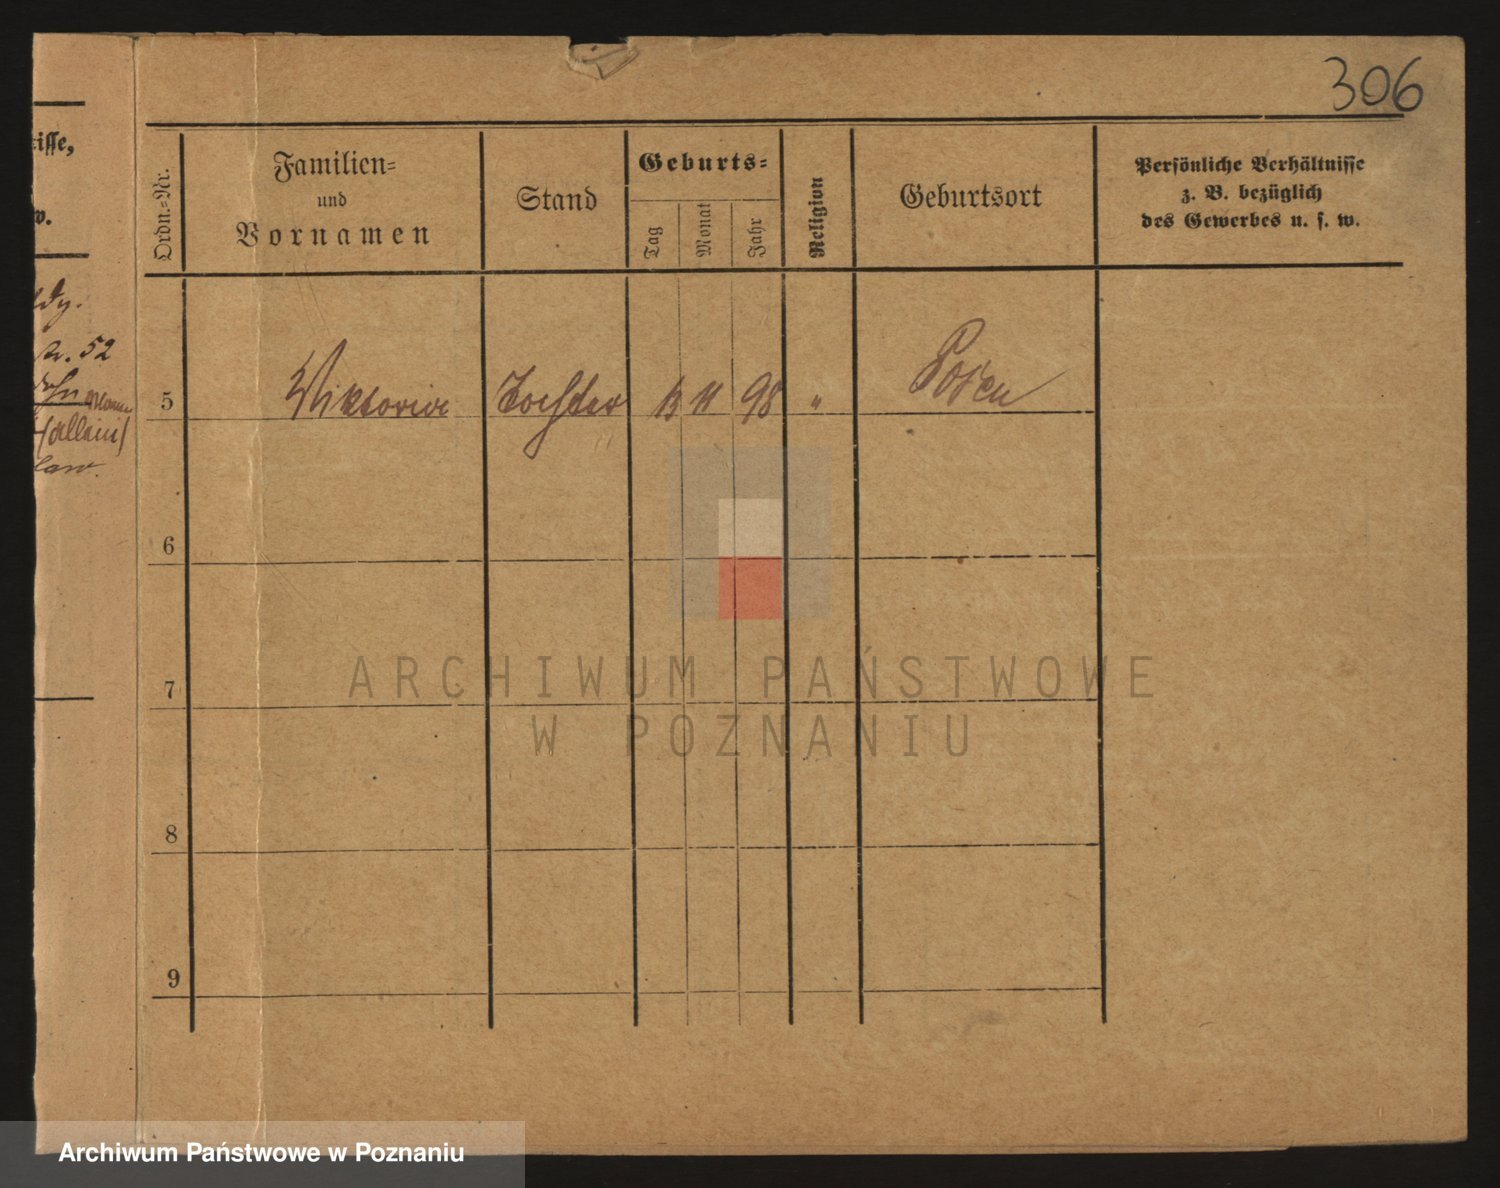 306
Ordn.-Nr.
Familien-
und
Vornamen
Stand
Geburts-
Tag
Monat
Jahr
Religion
Geburtsort
Persönliche Verhältnisse
z. B. bezüglich
des Gewerbes u. s. w.
isse,
w.
52
(allein)
5 Viktoria Tochter 11 98 " Posen
6
7
8
9
ARCHIWUM PAŃSTWOWE
W POZNANIU
Archiwum Państwowe w Poznaniu